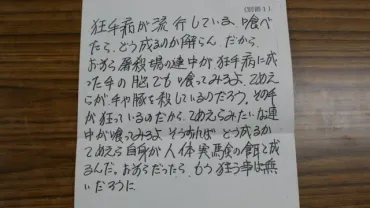 (別紙1)
狂牛病が流行している、喰べ
たら、どう成るのか解らん、だから
おめえら屠殺場の連中が、狂牛病に成
った牛の脳でも喰ってみろよ、てめえ
らが、牛や豚を殺しているのだろう。その牛
が狂っているのだから、てめえらみたいな連
中が喰ってみろよ そうすれば どう成るか
てめえら自身が人体実験の餌に成
るんだ。おめえらだったら、もう狂う事は無
いだろうに